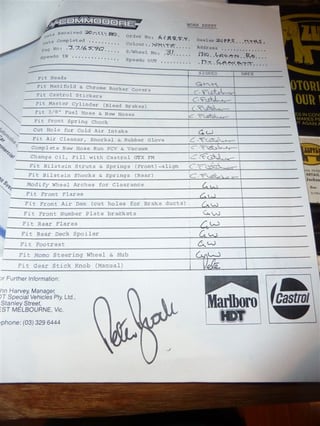 COMMODORE WORK SHEET
Date Received 20 Mil 1980. Order No. Dealer ZUPPS MTRS.
Date Completed Colour. WHITE Address
Reg No. S/Wheel No. 31 1310 LOGAN RD
Speedo IN Speedo OUT MT GRAVATT
SIGNED
Fit Heads GMH
Fit Manifold & Chrome Rocker Covers C Fletcher
Fit Castrol Stickers C Fletcher
Fit Master Cylinder (Bleed Brakes) C Fletcher
Fit 3/8" Fuel Hose & New Hoses C Fletcher
Fit Front Spring Chock
Cut Hole for Cold Air Intake GW
Fit Air Cleaner, Snorkal & Rubber Glove C Fletcher
Complete New Hose Run PCV & Vacuum C Fletcher
Change Oil, Fill with Castrol C Fletcher
Fit Bilstein Struts & Springs (Front)-align C Fletcher
Fit Bilstein Shocks & Springs (Rear) C Fletcher
Modify Wheel Arches for Clearance GW
Fit Front Flares GW
Fit Front Air Dam (cut holes for Brake ducts) GW
Fit Front Number Plate brackets GW
Fit Rear Flares GW
Fit Rear Deck Spoiler GW
Fit Footrest GW
Fit Momo Steering Wheel & Hub GW
Fit Gear Stick Knob (Manual) Pete
For Further Information:
John Harvey, Manager,
HDT Special Vehicles Pty. Ltd.,
Stanley Street,
WEST MELBOURNE, Vic.
Telephone: (03) 329 6444
Marlboro
HDT
Castrol
Peter Brock